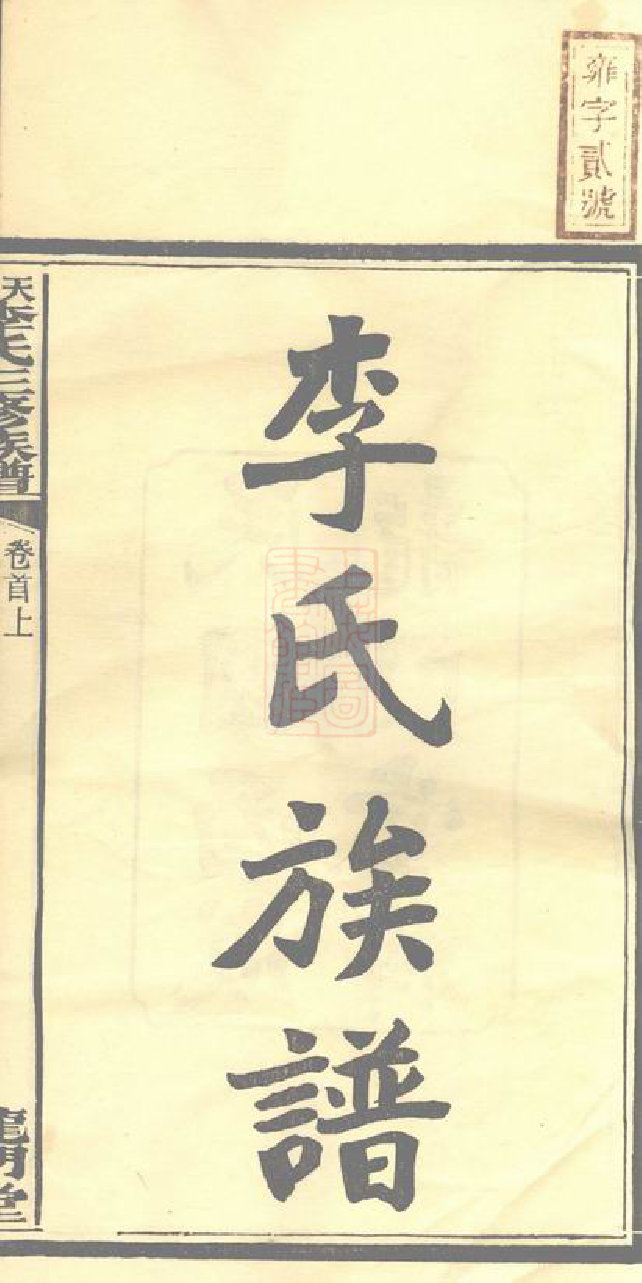 雍字貳號
李氏族譜
天
李氏三修族譜
卷首上
龍門堂